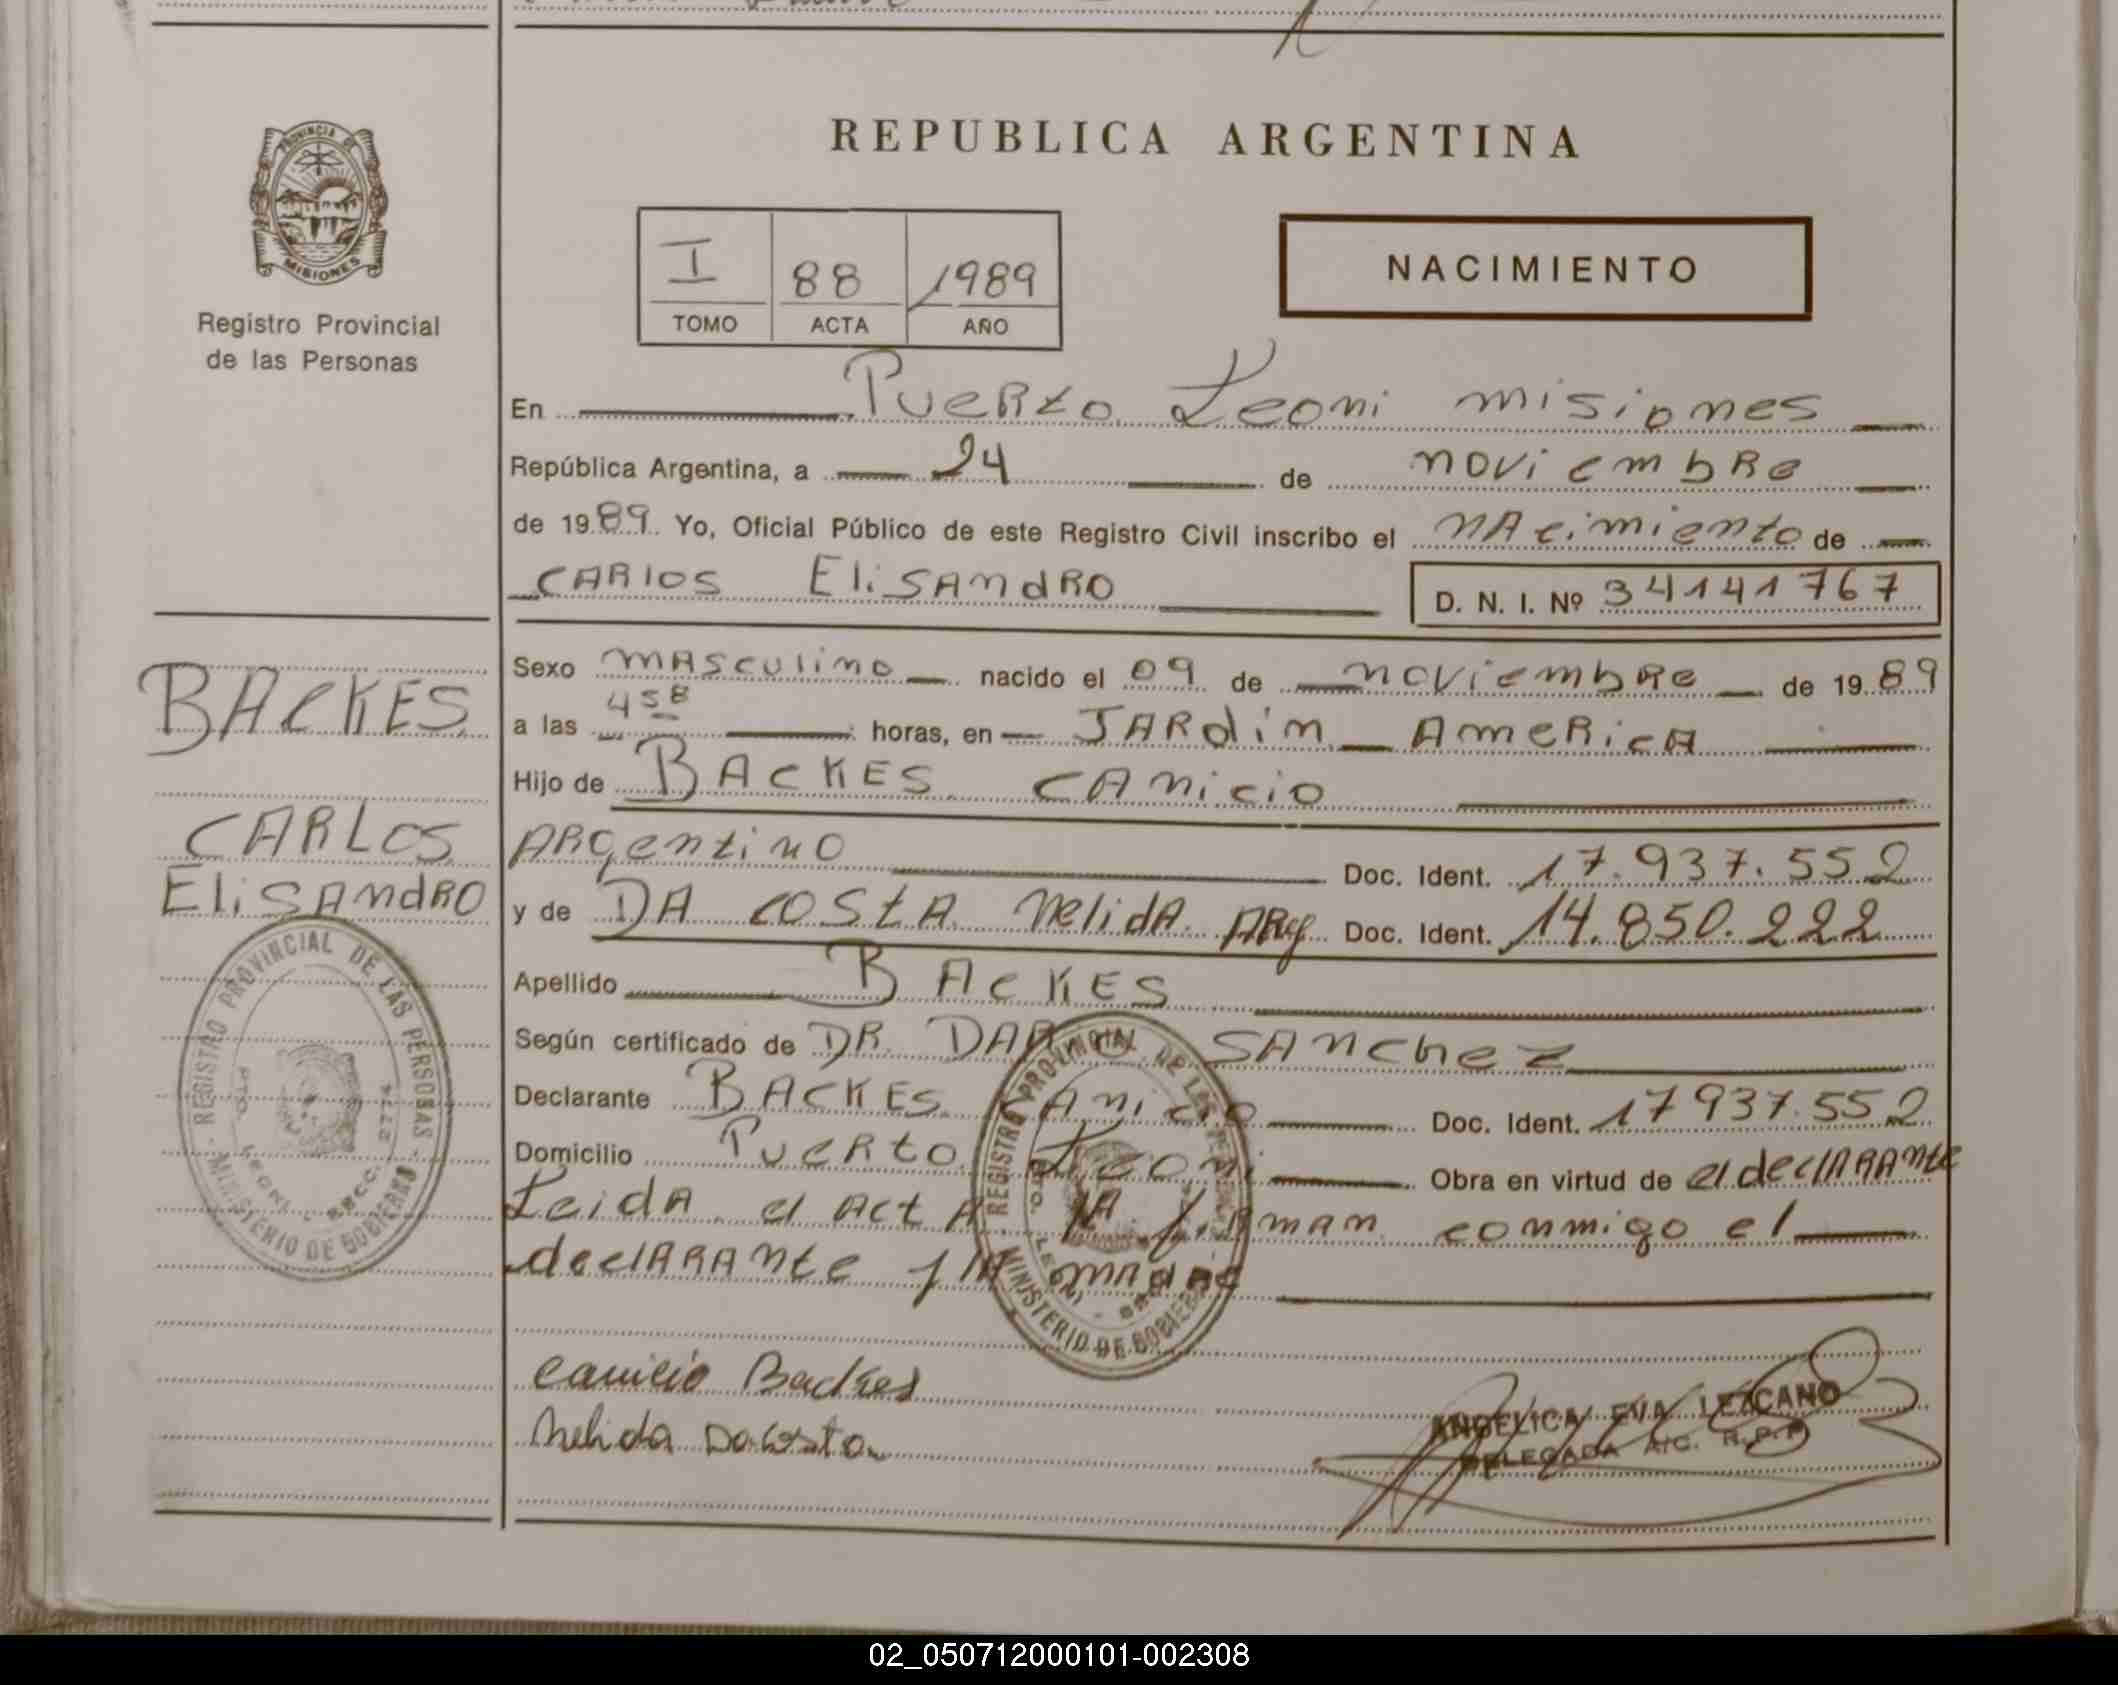 REPUBLICA ARGENTINA
PROVINCIA DE
MISIONES
Registro Provincial
de las Personas
I 88 1989
TOMO ACTA AÑO
NACIMIENTO
En Puerto Leoni misiones
República Argentina, a 24 de noviembre
de 1989 Yo, Oficial Público de este Registro Civil inscribo el nacimiento de
CARLOS ELiSANdRO
D. N. I. Nº 34141767
Sexo masculino nacido el 09 de noviembre de 1989
a las 4 58 horas, en JARdin America
Hijo de BACKES CANicio
ARgentino Doc. Ident. 17.937.552
y de DA COStA NelidA ARg Doc. Ident. 14.850.222
Apellido BACKES
Según certificado de DR. SANchez
Declarante BACKES CANicio Doc. Ident. 17 937.552
Domicilio Puerto Leoni Obra en virtud de el declARANte
LeidA el ActA lA fiRman conmigo el
declARANte y lA madre
Canicio Backes
Nelida Dacosta
ANGELICA EVA LEZCANO
DELEGADA A/C. R.P.P
BACKES
CARLOS
ELiSANdRO
REGISTRO PROVINCIAL DE LAS PERSONAS
MINISTERIO DE GOBIERNO
PTO. LEONI - SECC. 2774
REGISTRO PROVINCIAL DE LAS PERSONAS
MINISTERIO DE GOBIERNO
02_050712000101-002308